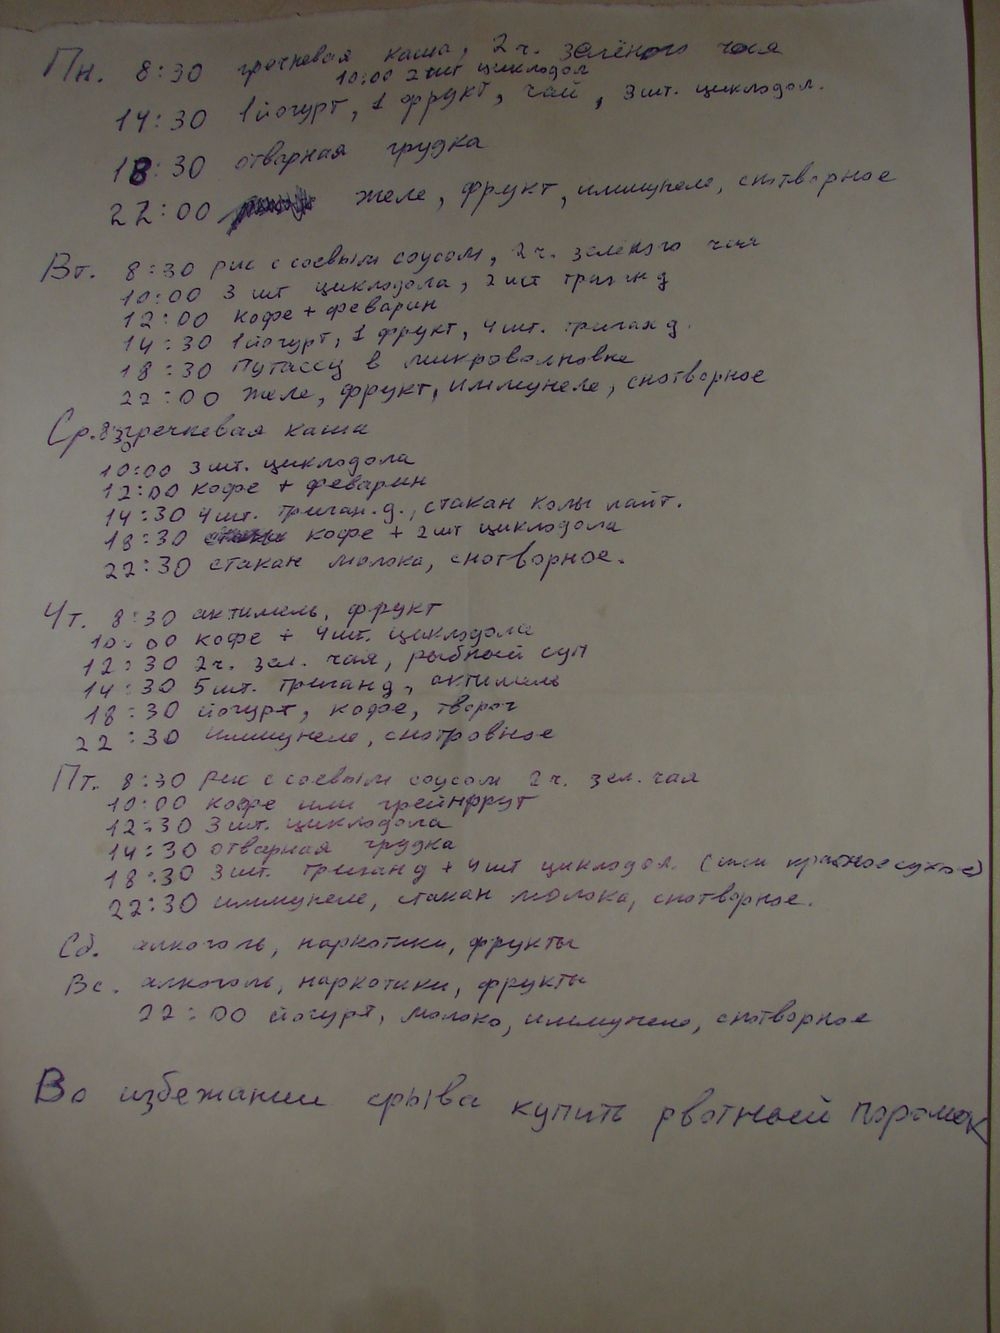 Пн. 8:30 гречневая каша, 2 ч. зелёного чая
10:00 2 шт циклодол
14:30 1 йогурт, 1 фрукт, чай, 3 шт. циклодол.
18:30 отварная грудка
22:00 желе, фрукт, иммунеле, снотворное
Вт. 8:30 рис с соевым соусом, 2 ч. зелёного чая
10:00 3 шт циклодола, 2 шт триган д
12:00 кофе + феварин
14:30 1 йогурт, 1 фрукт, 4 шт. триган д.
18:30 путассу в микроволновке
22:00 желе, фрукт, иммунеле, снотворное
Ср. 8:30 гречневая каша
10:00 3 шт. циклодола
12:00 кофе + феварин
14:30 4 шт. триган. д., стакан колы лайт.
18:30 кофе + 2 шт циклодола
22:30 стакан молока, снотворное.
Чт. 8:30 актимель, фрукт
10:00 кофе + 4 шт. циклодола
12:30 2 ч. зел. чая, рыбный суп
14:30 5 шт. триган д, актимель
18:30 йогурт, кофе, творог
22:30 иммунеле, снотровное
Пт. 8:30 рис с соевым соусом 2 ч. зел. чая
10:00 кофе или грейпфрут
12:30 3 шт. циклодола
14:30 отварная грудка
18:30 3 шт. триган д + 4 шт циклодол. (или красное сухое)
22:30 иммунеле, стакан молока, снотворное.
Сб. алкоголь, наркотики, фрукты
Вс. алкоголь, наркотики, фрукты
22:00 йогурт, молоко, иммунеле, снотворное
Во избежании срыва купить рвотный порошок